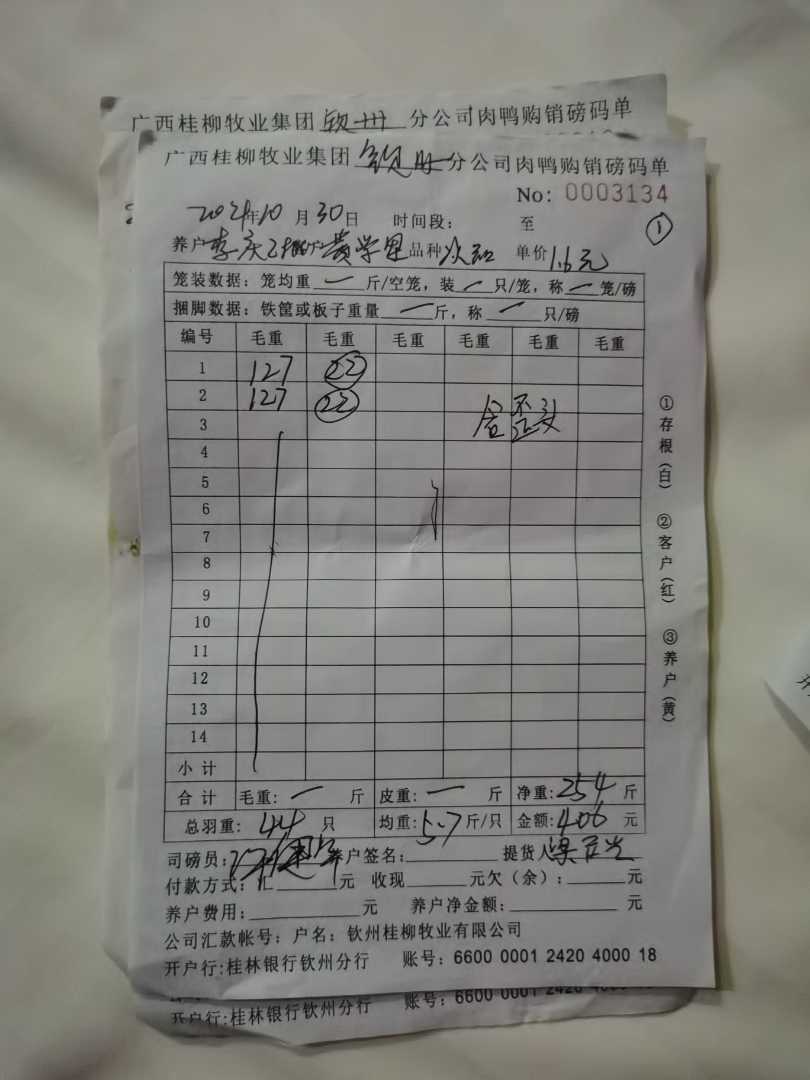 广西桂柳牧业集团 钦州 分公司肉鸭购销磅码单
广西桂柳牧业集团 钦州 分公司肉鸭购销磅码单
No: 0003134
2024年10月30日 时间段： 至 ①
养户 李庆 品种 单价 1.6元
笼装数据：笼均重 一 斤/空笼，装 一 只/笼，称 一 笼/磅
捆脚数据：铁筐或板子重量 一 斤，称 一 只/磅
编号 毛重 毛重 毛重 毛重 毛重 毛重
1 127 22
2 127 22
3
4
5
6
7
8
9
10
11
12
13
14
小计
合计 毛重: 一 斤 皮重: 一 斤 净重: 254 斤
总羽重: 44 只 均重: 5.7 斤/只 金额: 406 元
司磅员: 养户签名: 提货人
付款方式: 汇 元 收现 元欠（余）: 元
养户费用: 元 养户净金额: 元
公司汇款帐号：户名：钦州桂柳牧业有限公司
开户行:桂林银行钦州分行 账号: 6600 0001 2420 4000 18
开户行:桂林银行钦州分行 账号: 6600 0001 2420 4000 18
①存根（白） ②客户（红） ③养户（黄）